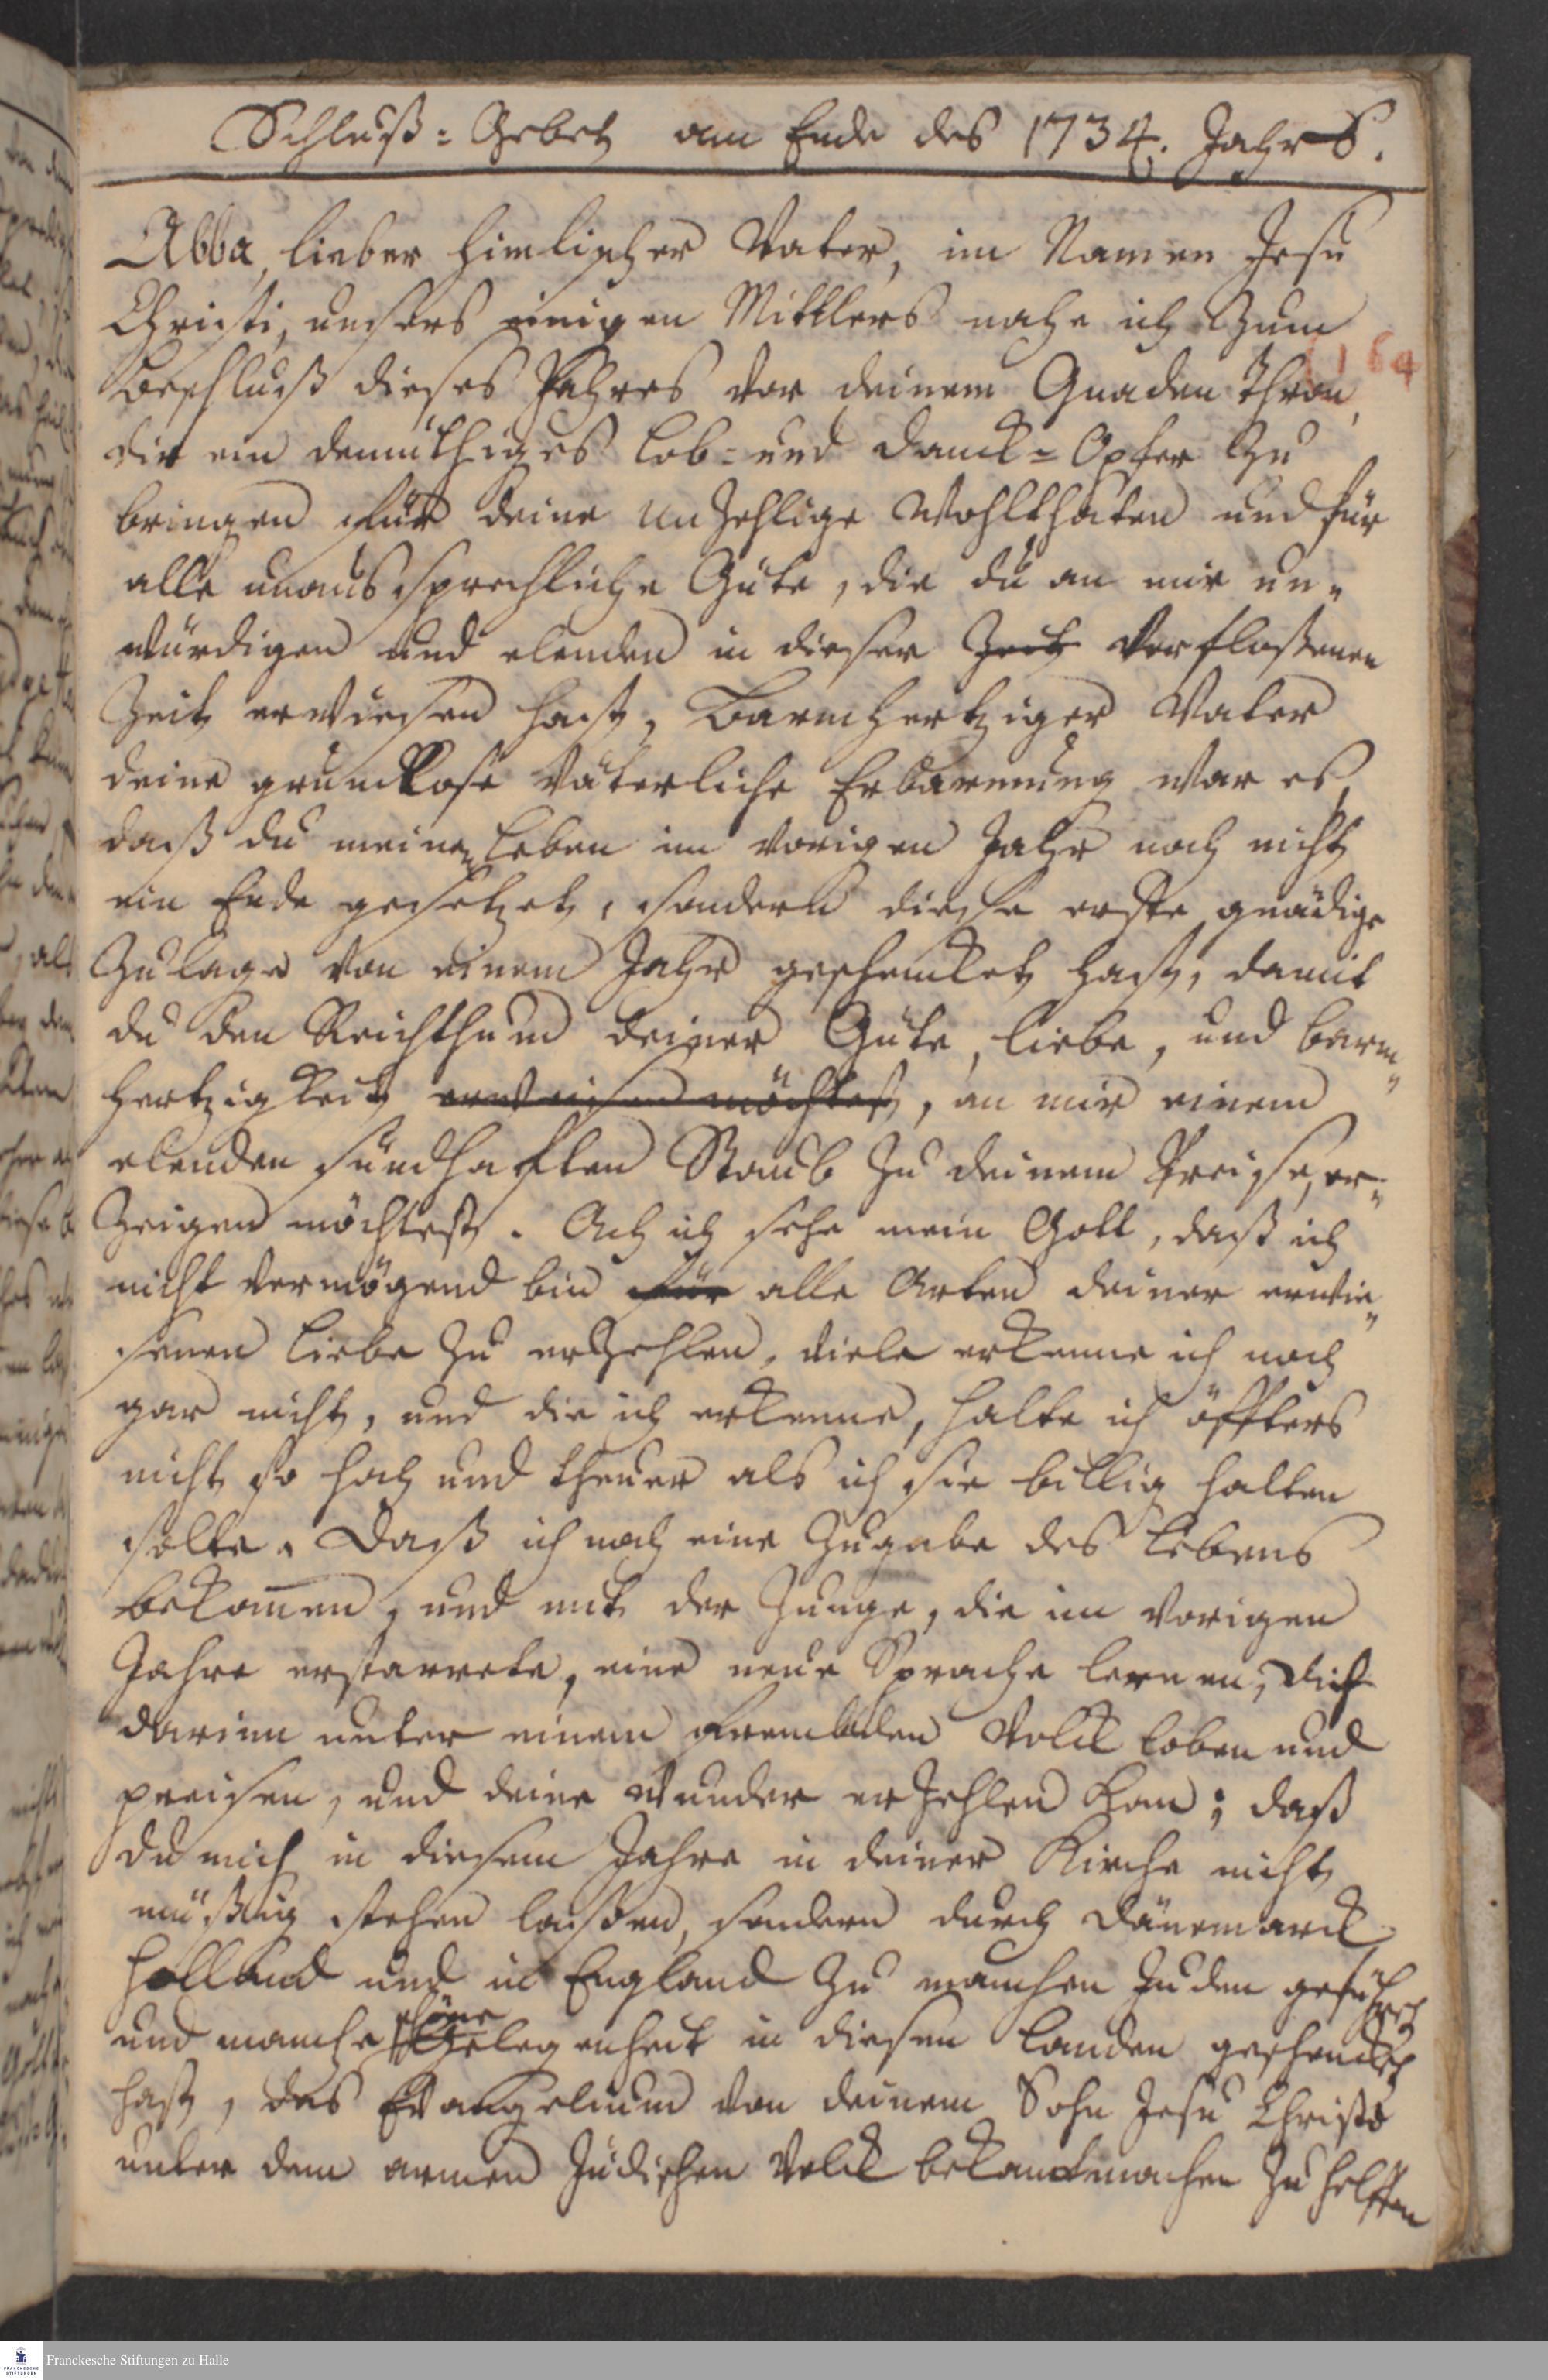 Schluß-Gebeth am Ende des 1734. Jahrs.
Abba, lieber himlischer Vater, im Namen Jesu
Christi, unsers einigen Mittlers nahe ich zum
Beschluß dieses Jahres vor deinem Gnaden Thron,
164
dir ein demüthiges Lob- und Danck-Opfer zu
bringen für deine unzehlige Wohlthaten und für
alle unaussprechliche Güte, die du an mir un-
würdigen und elenden in dieser Zeit verfloßenen
Zeit erwiesen hast. Barmhertziger Vater
deine grundlose väterliche Erbarmung war es,
daß du meinen Leben im vorigen Jahr noch nicht
ein Ende gesetzet, sondern diese erste gnädige
Zulage von einem Jahr geschencket hast, damit
du den Reichthum deiner Güte, Liebe, und Barm-
hertzigkeit erweisen möchtest, an mir einem
elenden sündhafften Staub zu deinem Preise, er-
zeigen möchtest. Ach ich sehe mein Gott, daß ich
nicht vermögend bin für alle Arten deiner erwie-
senen Liebe zu erzehlen, viele erkenne ich noch
gar nicht, und die ich erkenne, halte ich öffters
nicht so hoch und theuer als ich sie billig halten
solte. Daß ich noch eine Zugabe des Lebens
bekom̄en, und mit der Zunge, die im vorigen
Jahre erstarrete, eine neue Sprache lernen, dich
darinn unter einem frembden Volck loben und
preisen, und deine Wunder erzehlen kan; daß
du mich in diesem Jahre in deiner Kirche nicht
müßig stehen laßen, sondern durch Dänemarck,
Holland und in England zu manchen Juden geführet
und manche schöne Gelegenheit in diesen Landen geschencket
hast, das Evangelium von deinem Sohn Jesu Christo
unter dem armen Jüdischen Volck bekantmachen zu helffen
Franckesche Stiftungen zu Halle